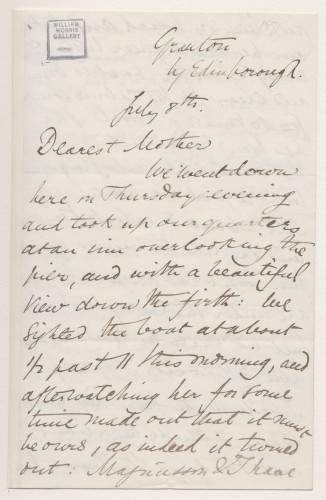 WILLIAM
MORRIS
GALLERY
Granton
by Edinborough.
July 8th.
Dearest Mother
We went down
here on Thursday evening
and took up our quarters
at an inn overlooking the
pier, and with a beautiful
view down the firth: We
sighted the boat at about
1/2 past 11 this morning, and
after watching her for some
time made out that it must
be ours, as indeed it turned
out: Magnusson & I have